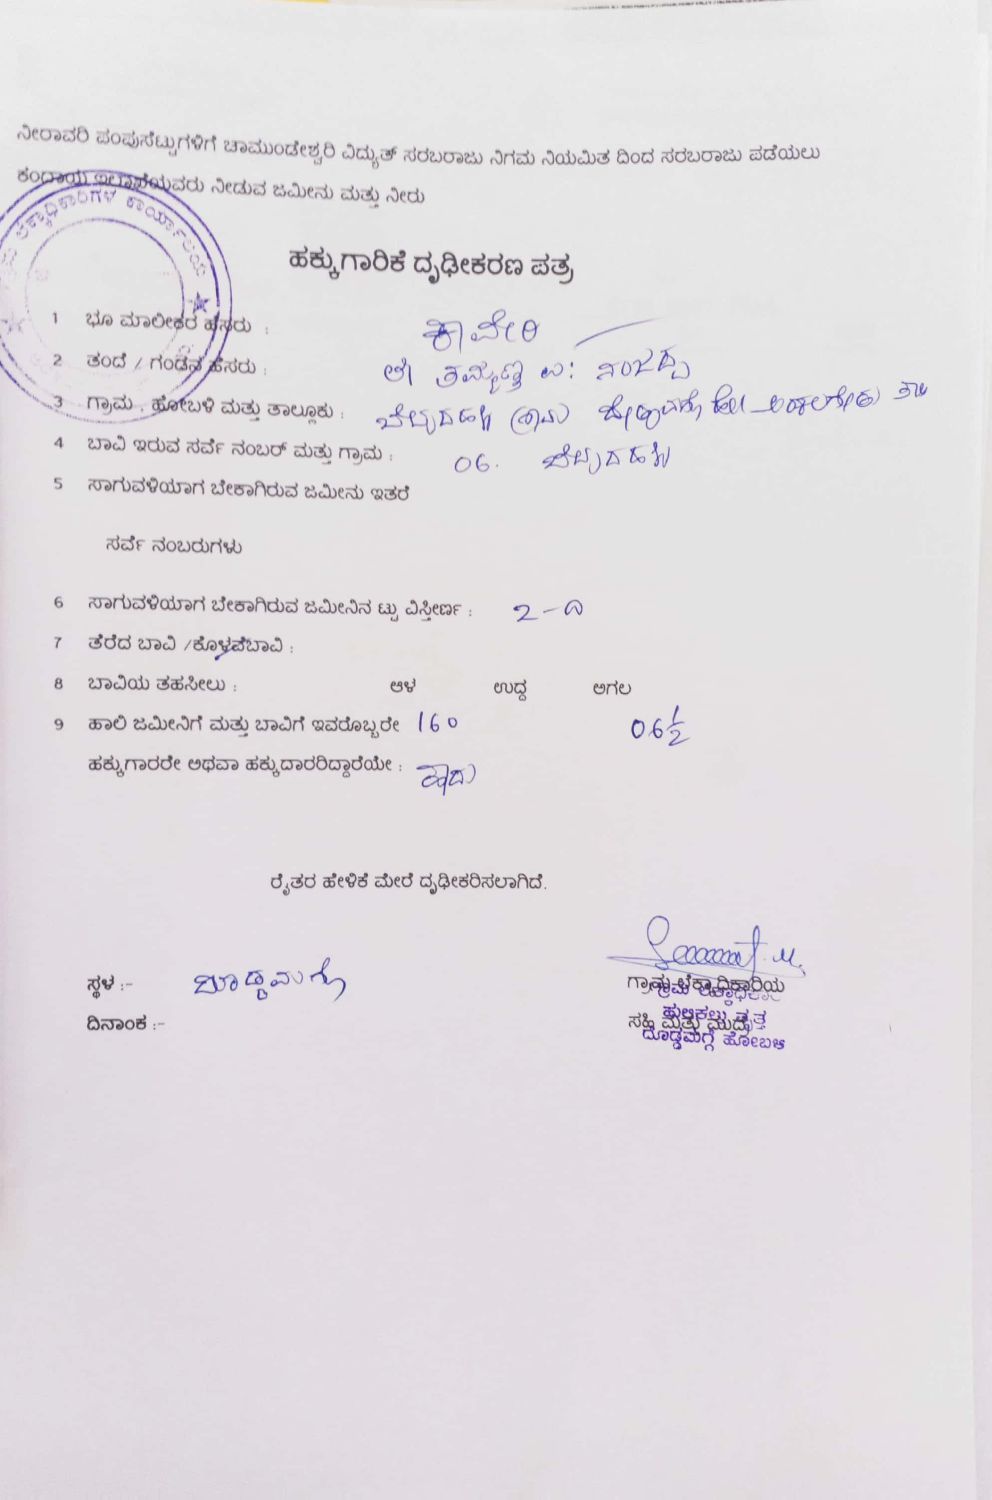 ನೀರಾವರಿ ಪಂಪುಸೆಟ್ಟುಗಳಿಗೆ ಚಾಮುಂಡೇಶ್ವರಿ ವಿದ್ಯುತ್ ಸರಬರಾಜು ನಿಗಮ ನಿಯಮಿತ ದಿಂದ ಸರಬರಾಜು ಪಡೆಯಲು
ಕಂದಾಯ ಇಲಾಖೆಯವರು ನೀಡುವ ಜಮೀನು ಮತ್ತು ನೀರು
ಕಾರ್ಯಾಲಯ
ಹಕ್ಕುಗಾರಿಕೆ ದೃಢೀಕರಣ ಪತ್ರ
1 ಭೂ ಮಾಲೀಕರ ಹೆಸರು : ಕಾವೇರಿ
2 ತಂದೆ / ಗಂಡನ ಹೆಸರು :
3 ಗ್ರಾಮ , ಹೋಬಳಿ ಮತ್ತು ತಾಲ್ಲೂಕು :
4 ಬಾವಿ ಇರುವ ಸರ್ವೆ ನಂಬರ್ ಮತ್ತು ಗ್ರಾಮ : 06.
5 ಸಾಗುವಳಿಯಾಗ ಬೇಕಾಗಿರುವ ಜಮೀನು ಇತರೆ
ಸರ್ವೆ ನಂಬರುಗಳು
6 ಸಾಗುವಳಿಯಾಗ ಬೇಕಾಗಿರುವ ಜಮೀನಿನ ಟ್ಟು ವಿಸ್ತೀರ್ಣ :
7 ತೆರೆದ ಬಾವಿ /ಕೊಳವೆಬಾವಿ :
8 ಬಾವಿಯ ತಹಸೀಲು : ಆಳ ಉದ್ದ ಅಗಲ
9 ಹಾಲಿ ಜಮೀನಿಗೆ ಮತ್ತು ಬಾವಿಗೆ ಇವರೊಬ್ಬರೇ 160 06 1/2
ಹಕ್ಕುಗಾರರೇ ಅಥವಾ ಹಕ್ಕುದಾರರಿದ್ದಾರೆಯೇ : ಹೌದು
ರೈತರ ಹೇಳಿಕೆ ಮೇರೆ ದೃಢೀಕರಿಸಲಾಗಿದೆ.
ಸ್ಥಳ :- ದೊಡ್ಡಮಗ್ಗೆ
ಗ್ರಾಮ ಲೆಕ್ಕಾಧಿಕಾರಿಯ
ದಿನಾಂಕ :- ಸಹಿ ಮತ್ತು ಮುದ್ರೆ
ದೊಡ್ಡಮಗ್ಗೆ ಹೋಬಳಿ